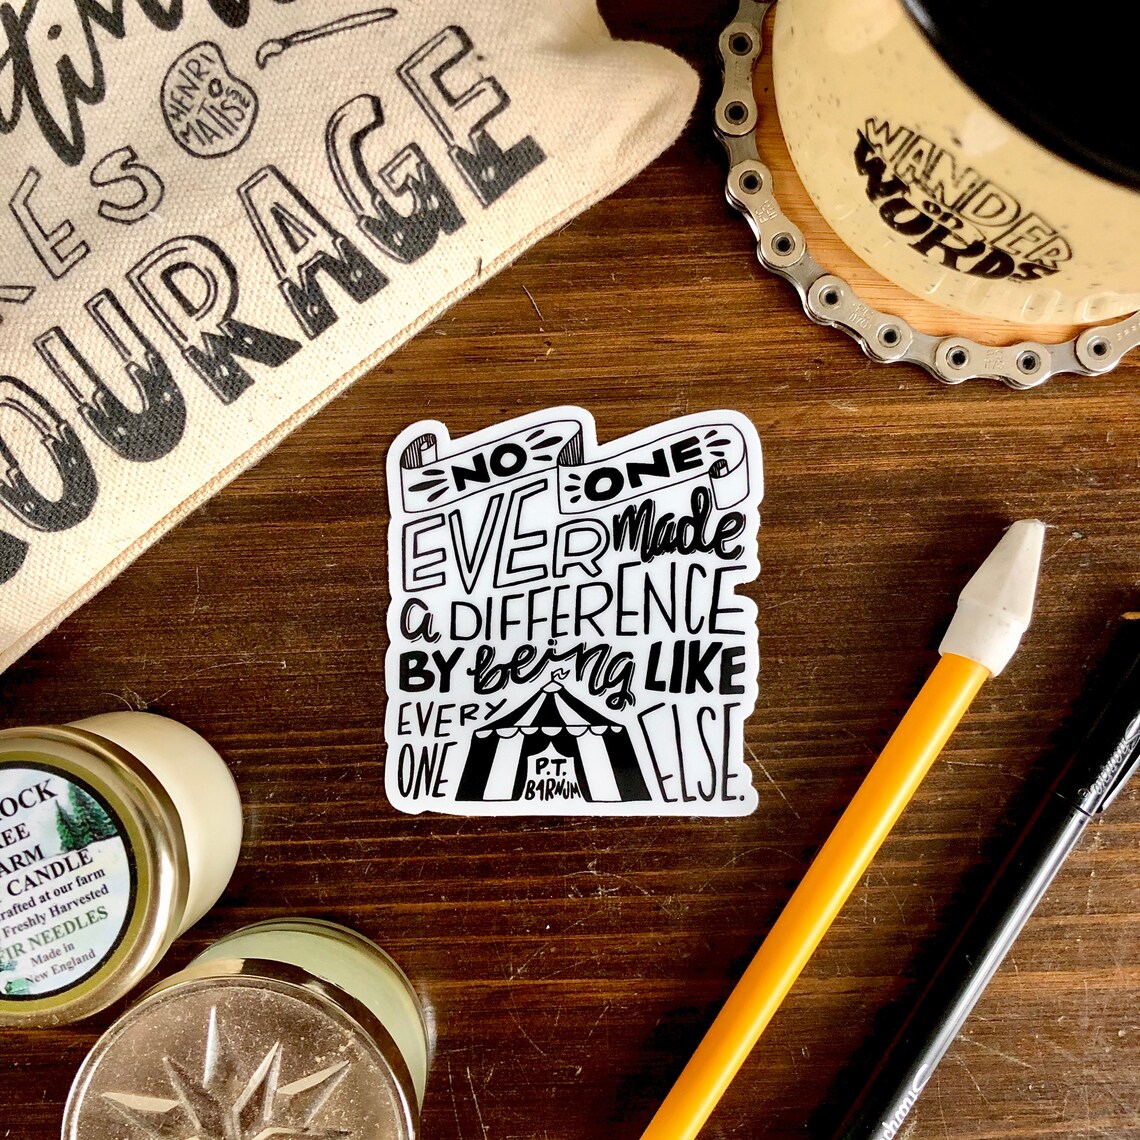 HENRI
MATISSE
COURAGE
WANDER
on
WORDS
NO ONE
EVER made
a DIFFERENCE
BY being LIKE
EVERY
ONE ELSE.
P.T.
BARNUM
CANDLE
at our farm
Freshly Harvested
FIR NEEDLES
Made in
New England